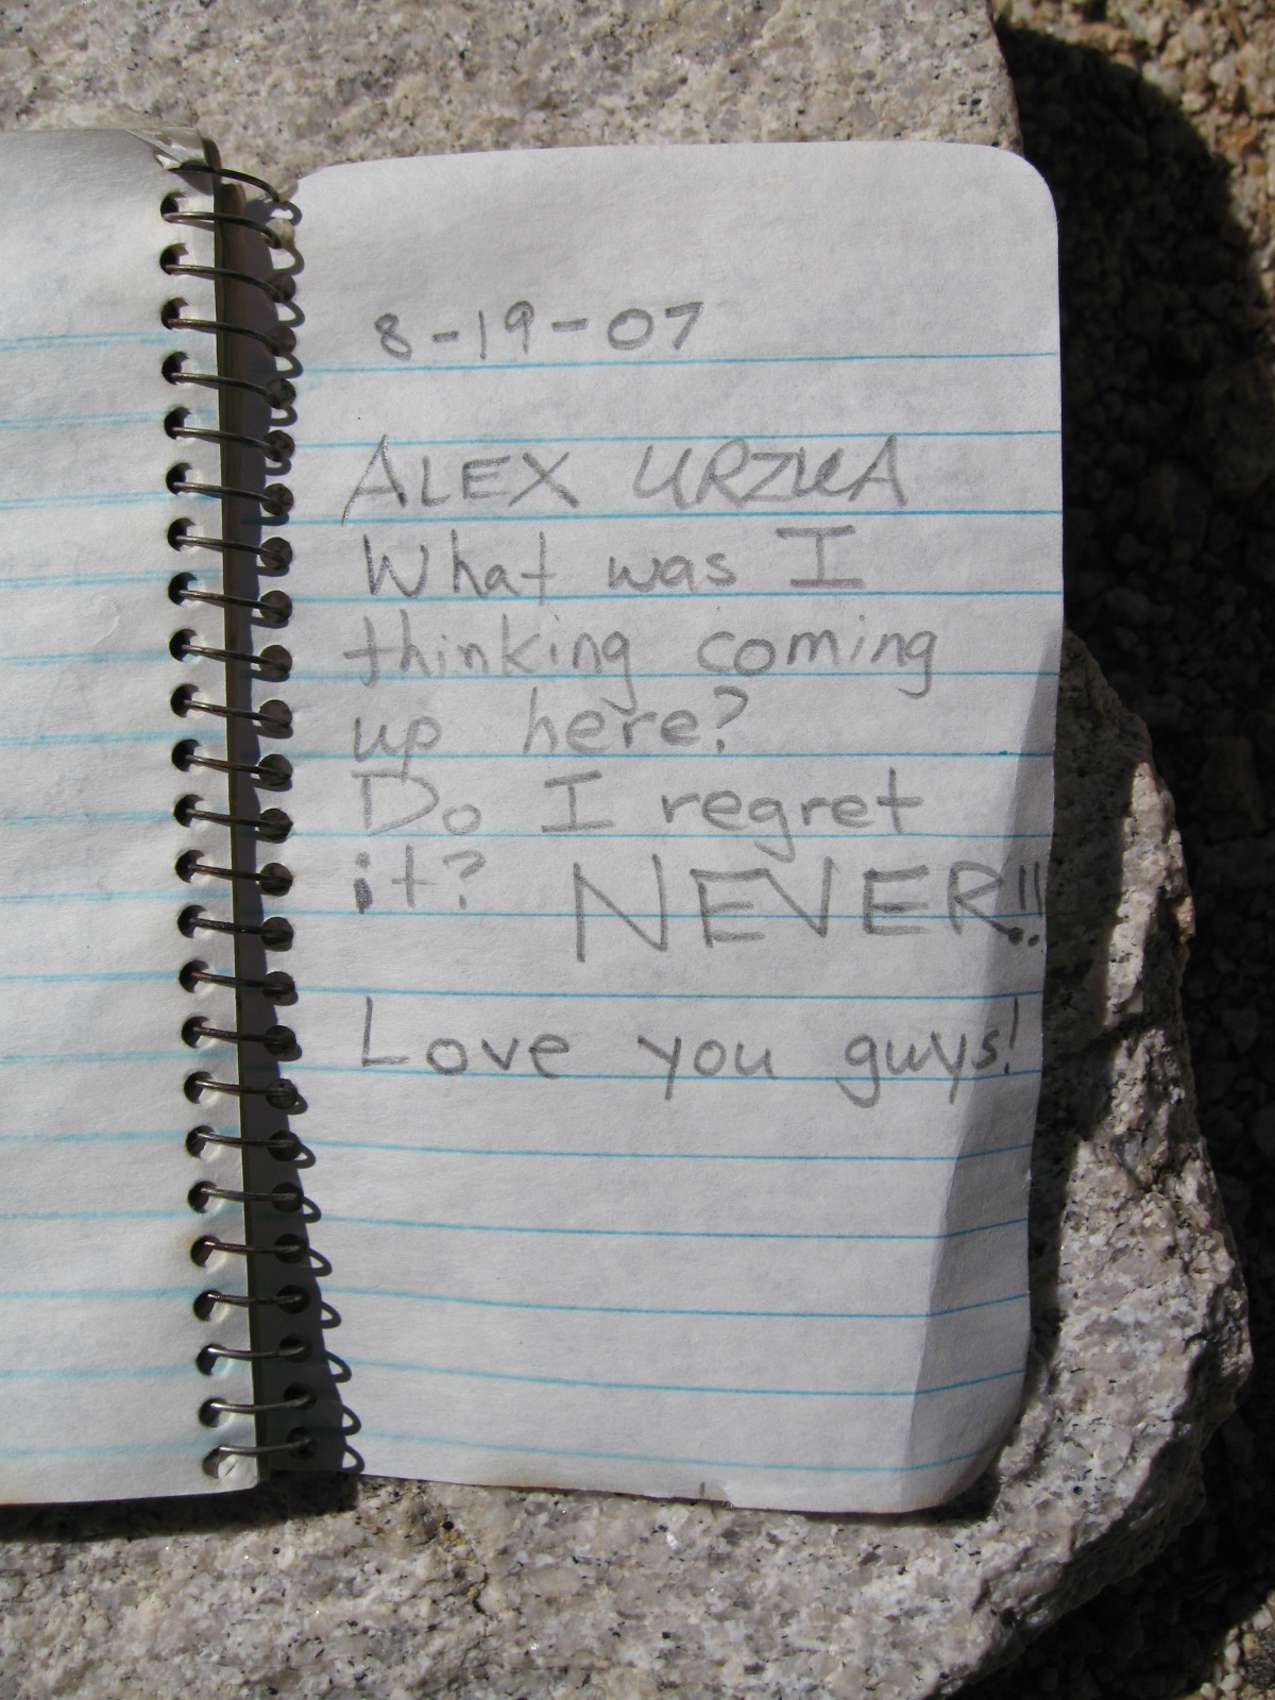 8-19-07
ALEX URZUA
What was I
thinking coming
up here?
Do I regret
it? NEVER!!
Love you guys!